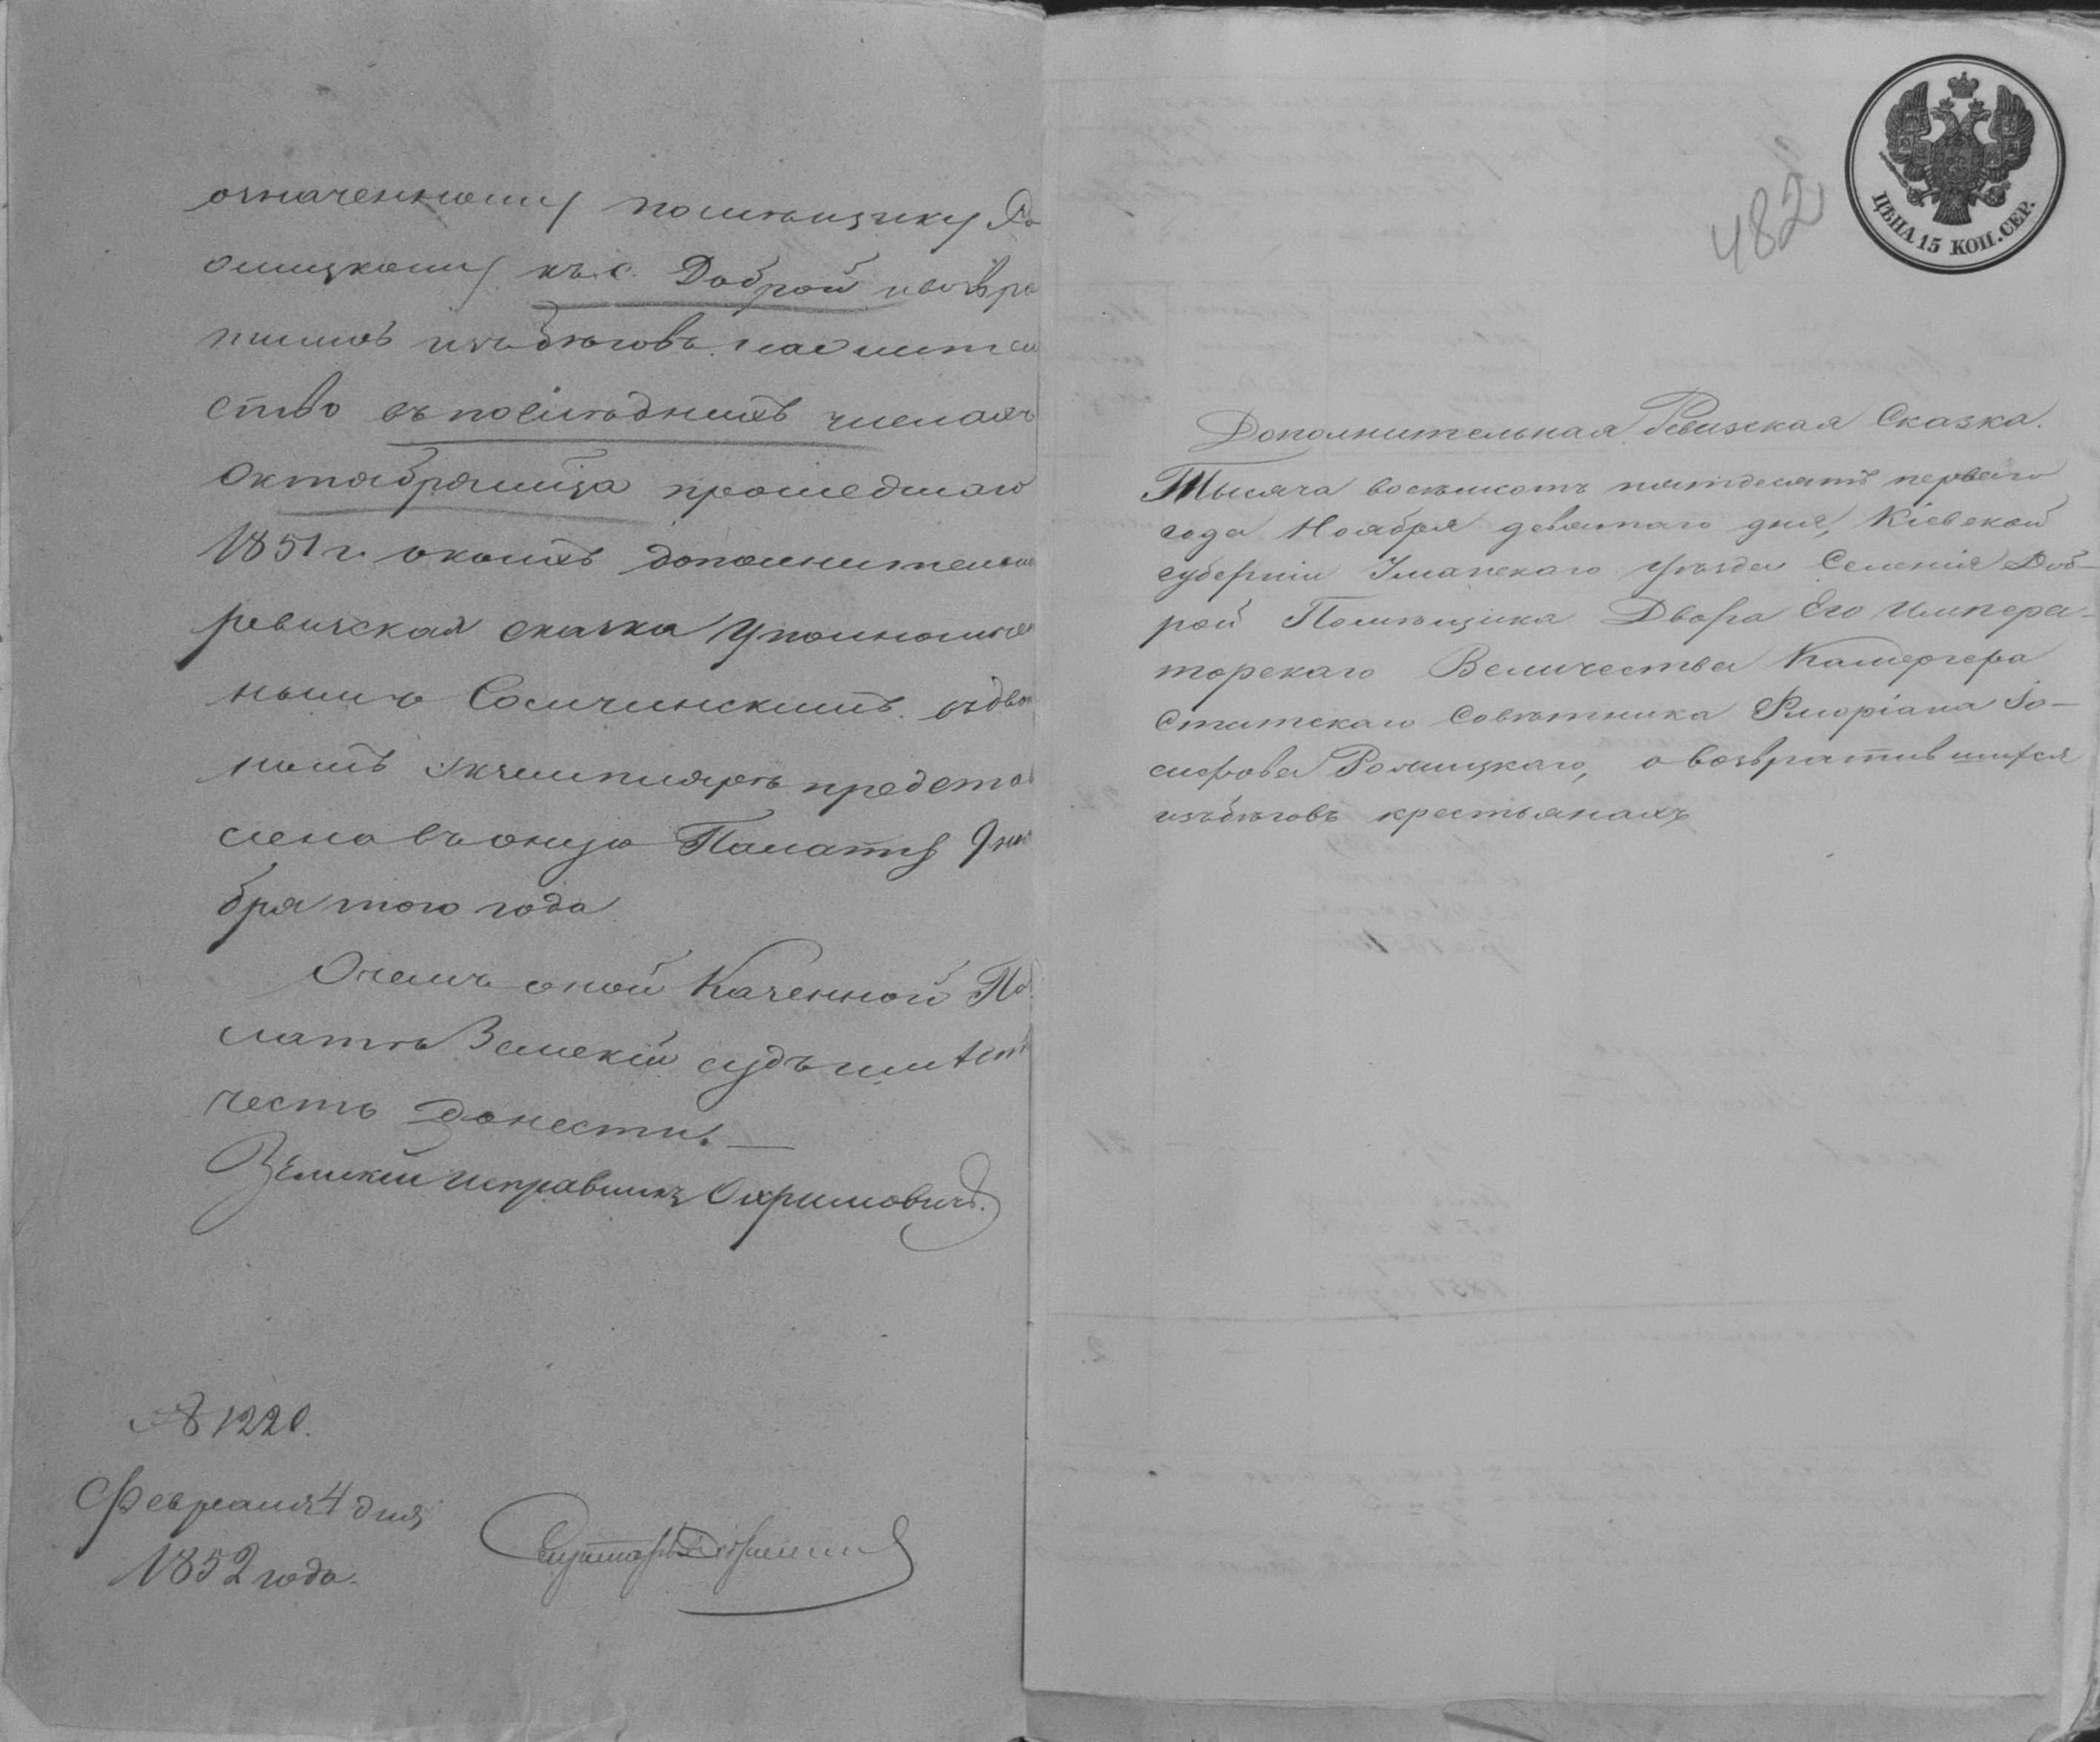 означенному помѣщику Ро
омицкому къ с. Доброй и возвра
тились изъ бѣговъ на
ство въ послѣднихъ числахъ
Октября мѣ́ца прошедшаго
1851 г. о коихъ дополнительная
ревизская сказка уполномочен
нымъ Сомчинскимъ въ двой
номъ экземплярѣ предста
влена въ оную Палату 9 ноя
бря того года
О чемъ оной Казенной Па
латѣ Земскій судъ имѣетъ
честь донести.—
Земскій исправникъ Охримовичъ.
№ 1220.
Февраля 4 дня
1852 года.
482
ЦѢНА 15 КОП. СЕР.
Дополнительная Ревизская Сказка.
Тысяча восемьсотъ пятдесятъ перваго
года Ноября девятаго дня, Кіевской
губерніи Уманскаго уѣзда Селенія Доб-
рой Помѣщика Двора Его Импера-
торскаго Величества Камергера
Статскаго Совѣтника Флоріана Іо-
сифова Ромицкаго, о возвратившихся
изъ бѣговъ крестьянахъ